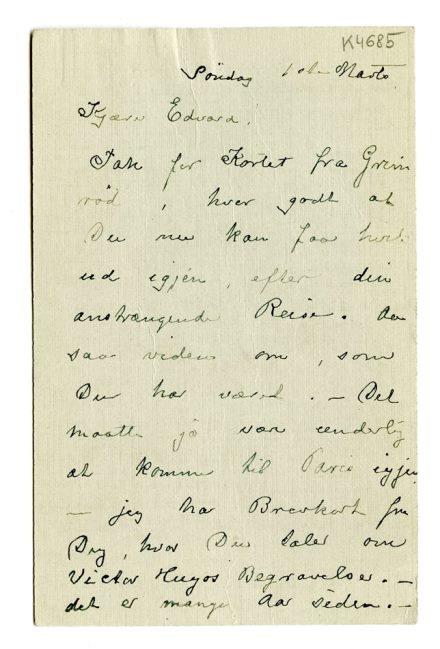 K4685
Søndag 1ste Marts
Kjære Edvard,
Tak for Kortet fra Grim
rød, hvor godt at
Du nu kan faa hvile
ud igjen, efter din
anstrængende Reise. da
saa videns om, som
Du har været. – Det
maatte jo være underlig
at komme til Paris igjen
– jeg har Brevkort fra
Dig, hvor Du taler om
Victor Hugos Begravelse. –
det er mange Aar siden. –